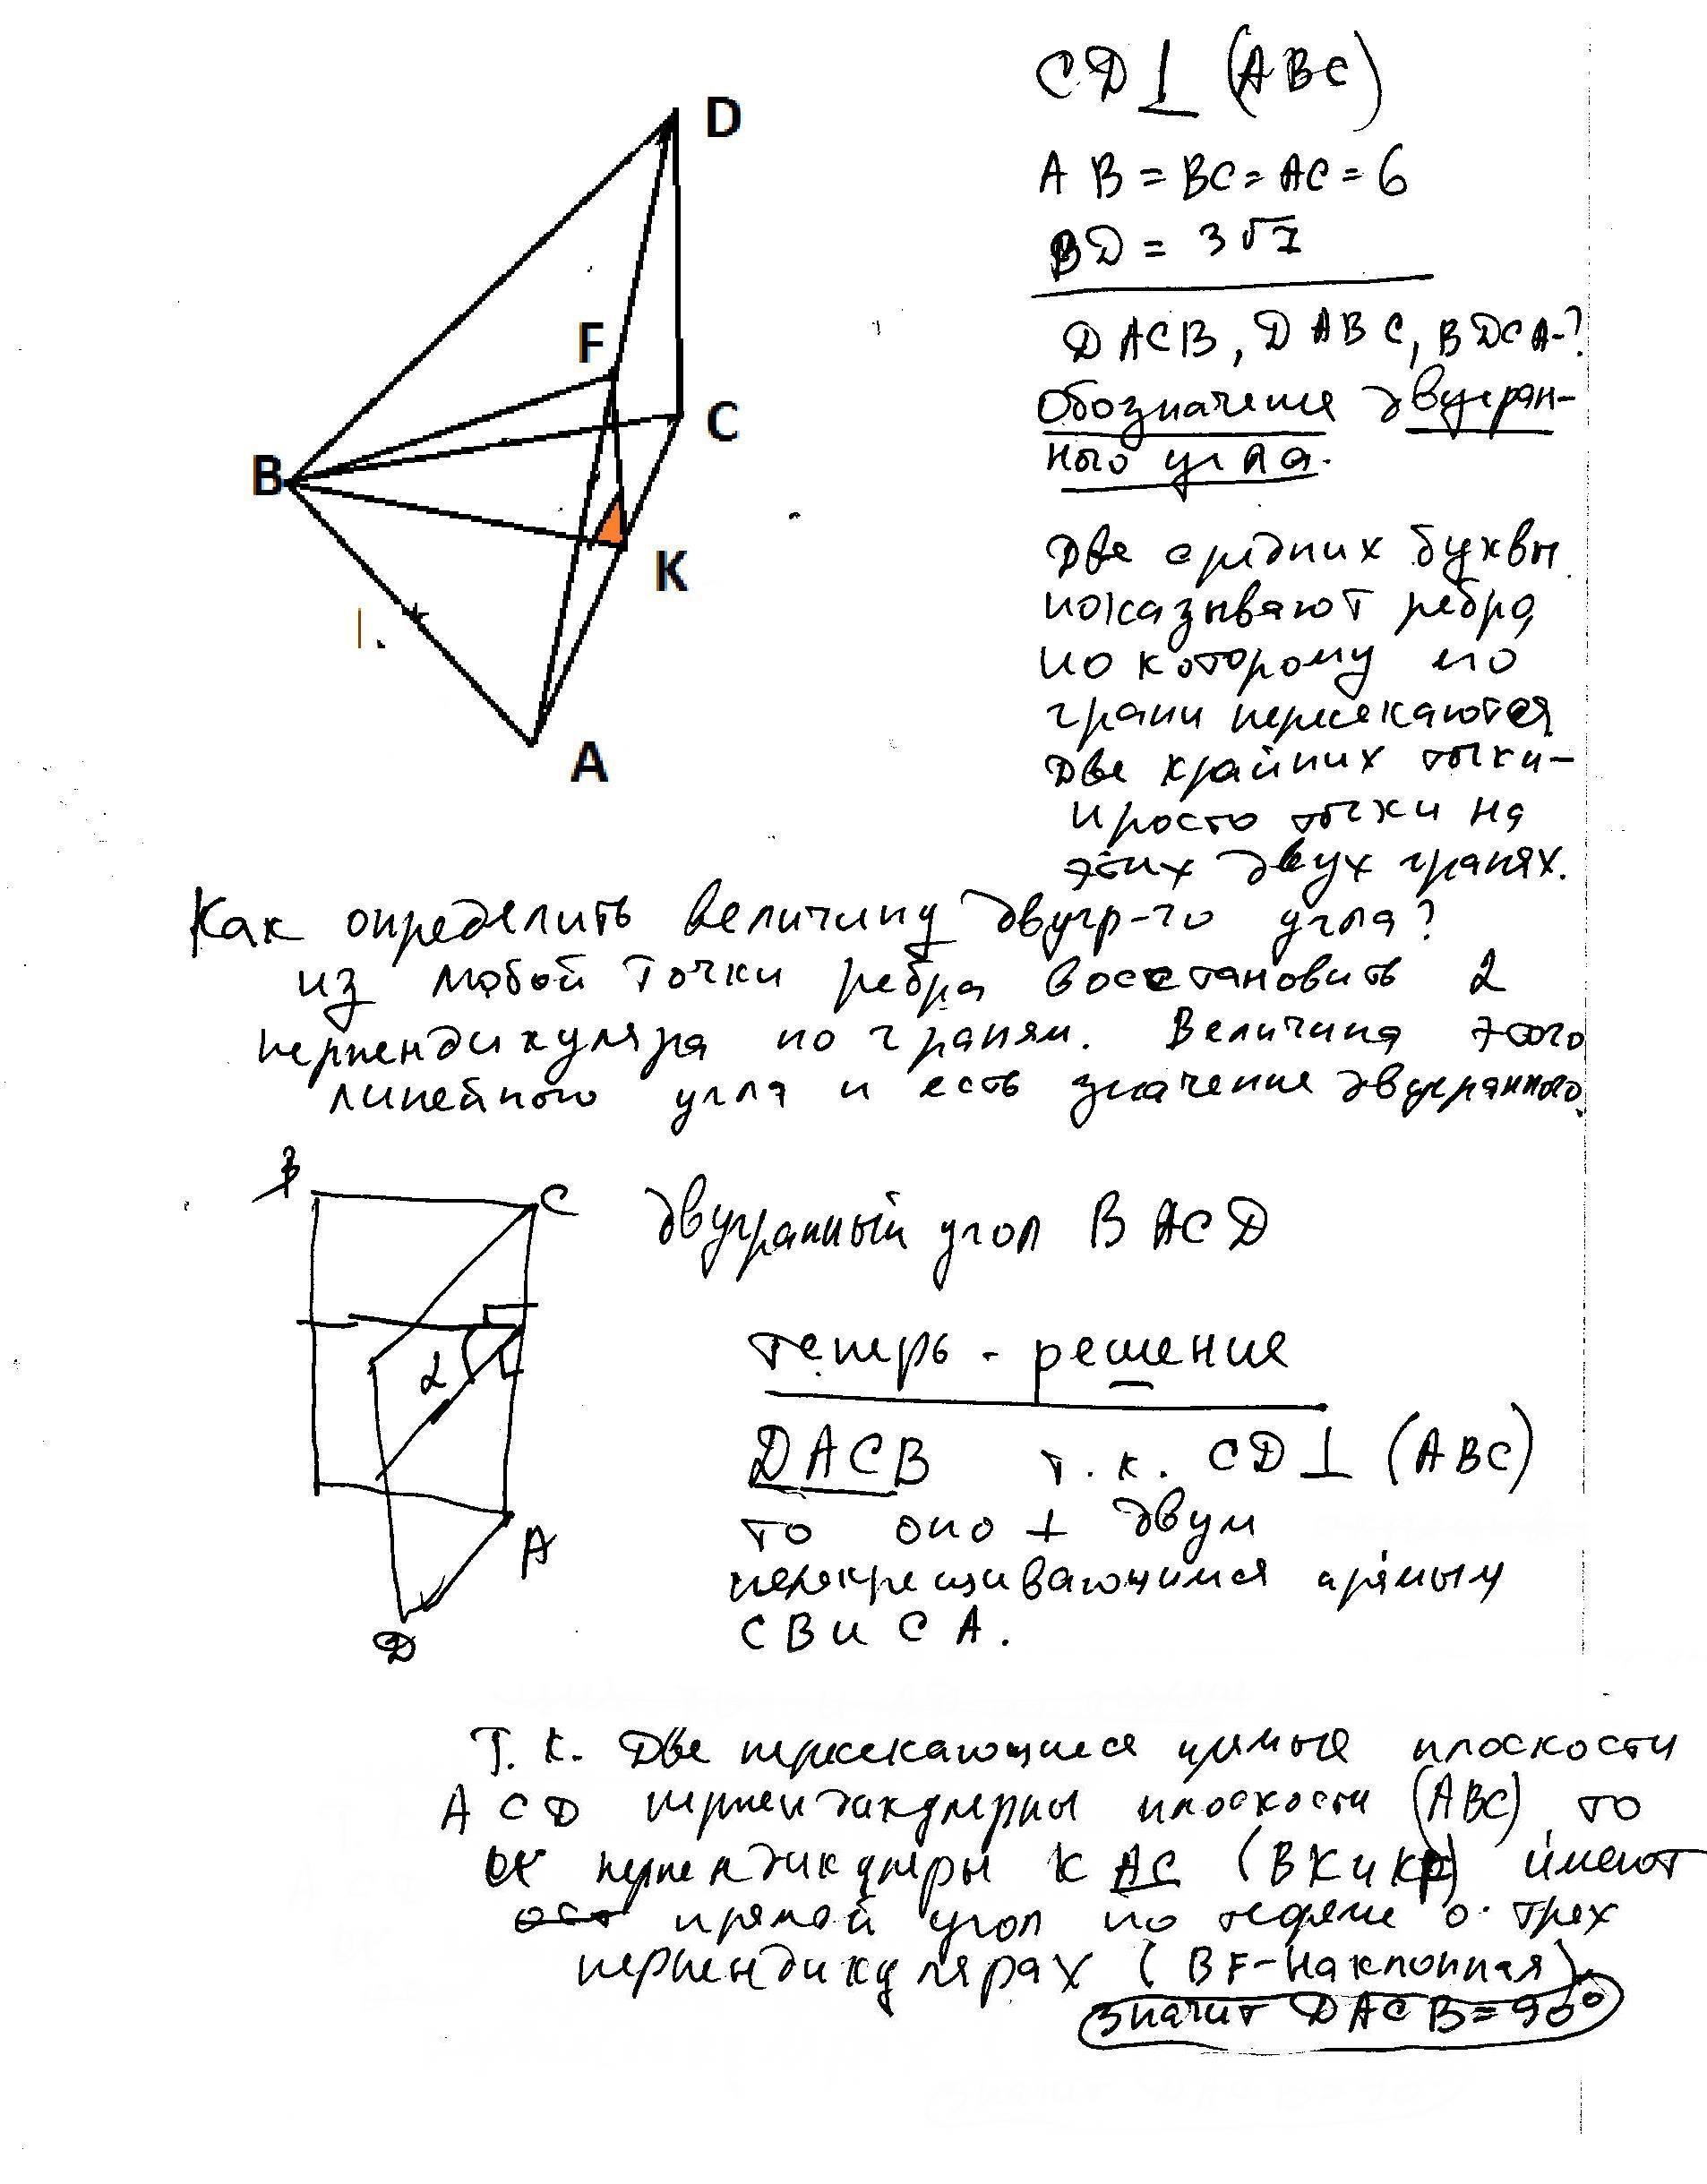 CD⊥ (ABC)
AB = BC = AC = 6
BD = 3√7
DACB, DABC, BDCA-?
Обозначение двугран-
ного угла.
Две средних буквы
показывают ребро,
по которому
грани пересекаются
Две крайних точки-
просто точки на
этих двух гранях.
D
F
C
B
K
A
Как определить величину двугр-го угла?
из любой точки ребра восстановить 2
перпендикуляра по граням. Величина этого
линейного угла и есть значение двугранного.
B
C
двугранный угол BACD
2
A
D
Теперь - решение
DACB т.к. CD⊥ (ABC)
то оно ⊥ двум
перекрещивающимся прямым
CB и CA.
Т.к. Две пересекающиеся прямые плоскости
ACD перпендикулярны плоскости (ABC), то
перпендикуляры к AC (BK и KF) имеют
прямой угол по теореме о трех
перпендикулярах (BF-наклонная).
значит DACB=90°